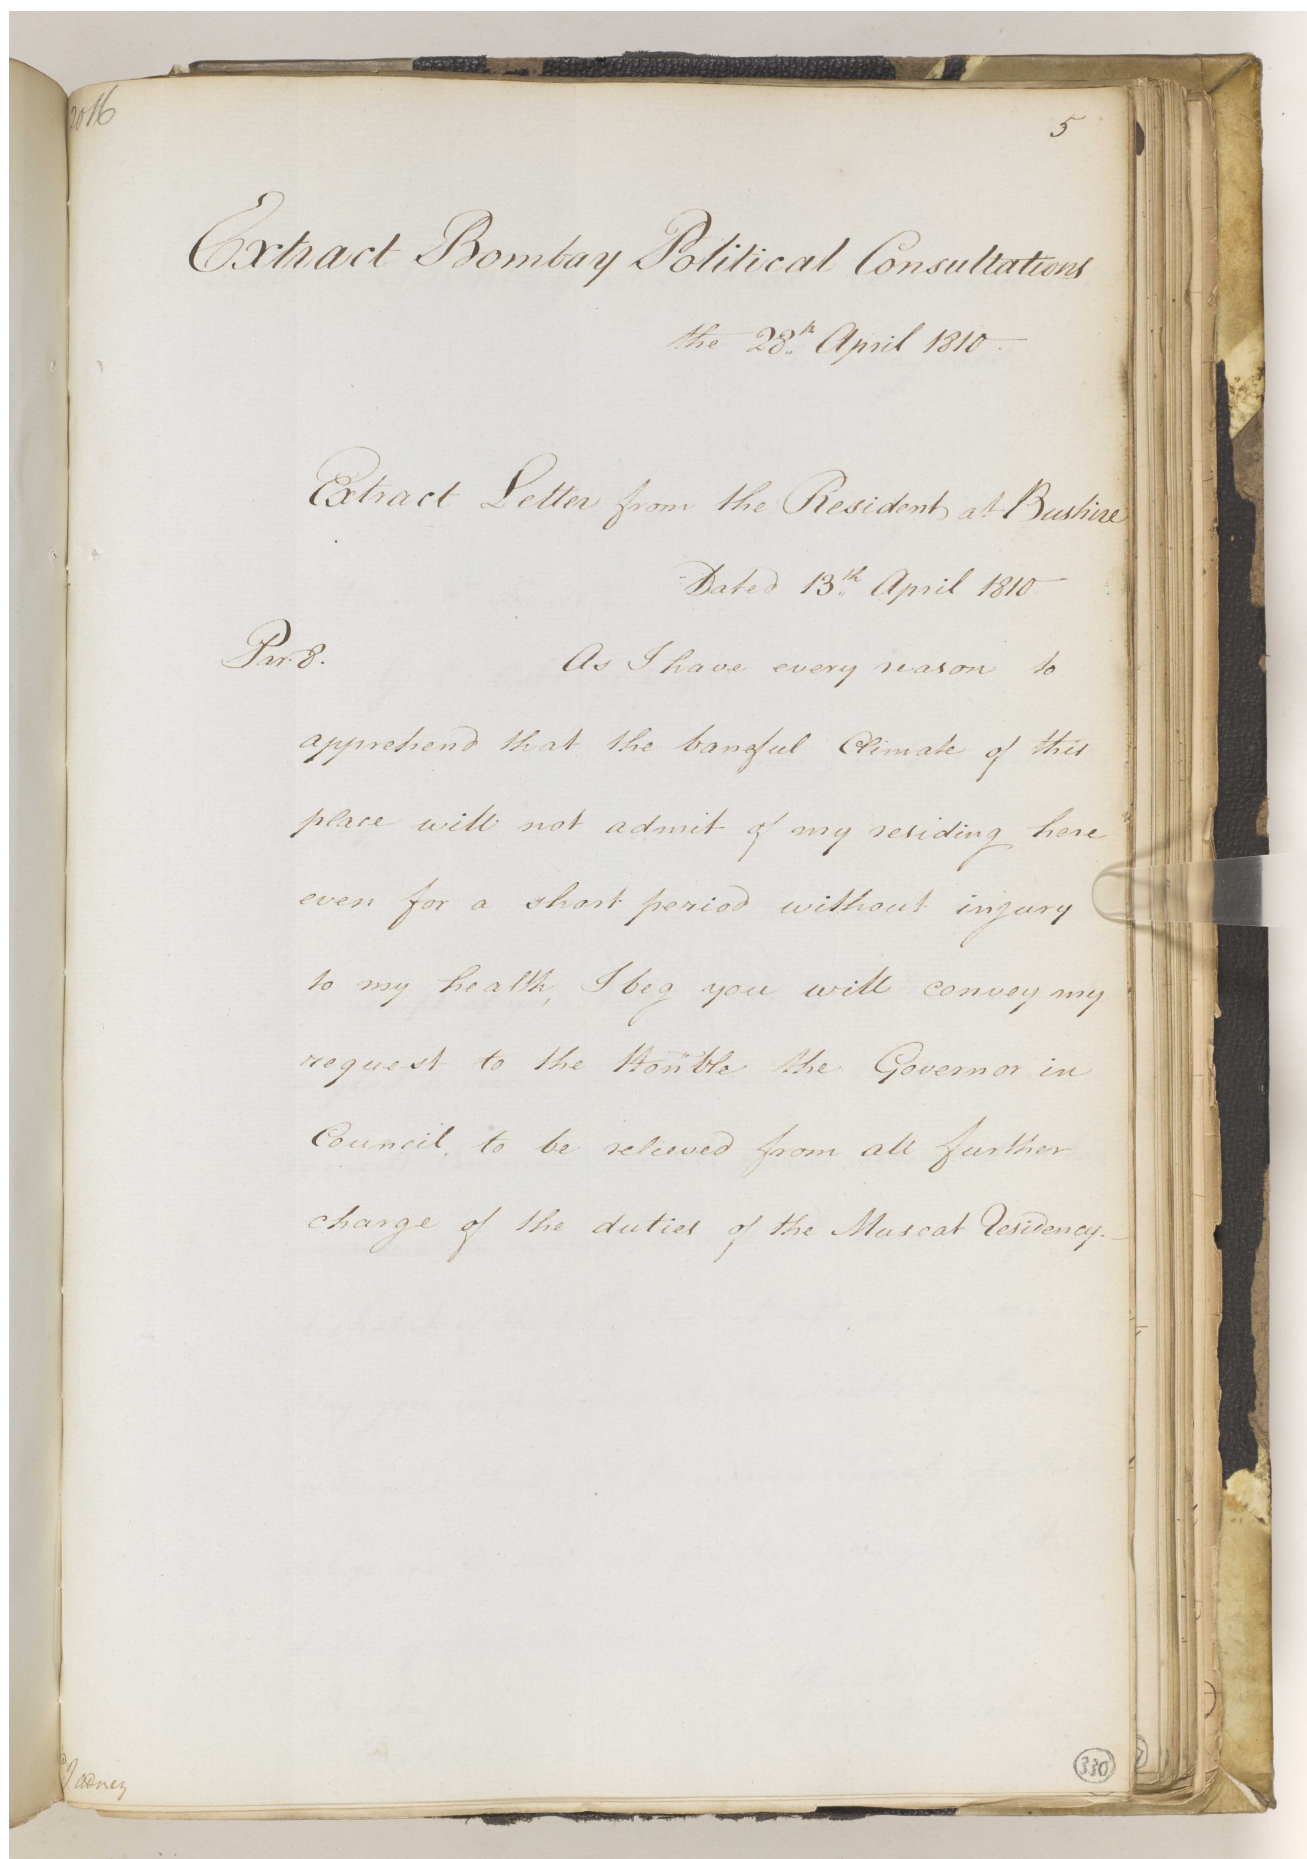 2016
5
Extract Bombay Political Consultations
the 28th April 1810
Extract Letter from the Resident at Bushire
Dated 13th April 1810
Par. 8. As I have every reason to
apprehend that the baneful Climate of this
place will not admit of my residing here
even for a short period without injury
to my health, I beg you will convey my
request to the Hon'ble the Governor in
Council, to be relieved from all further
charge of the duties of the Muscat Residency.
330